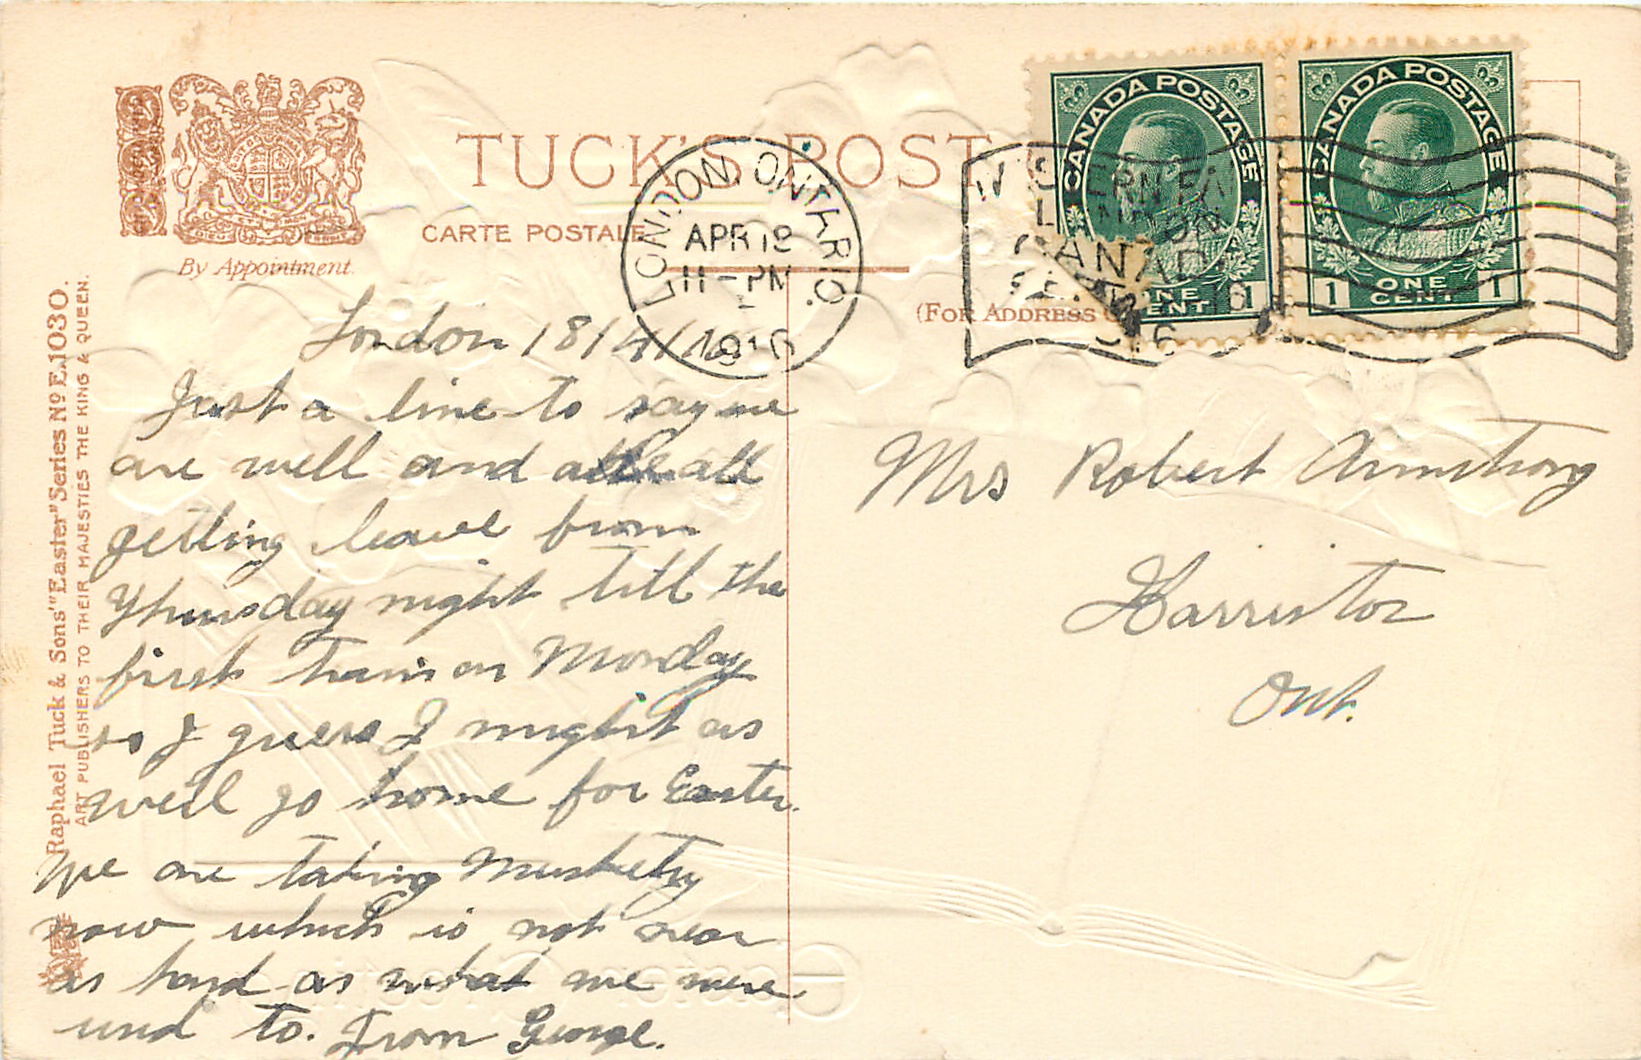 TUCK'S POST
CARTE POSTALE
By Appointment
(FOR ADDRESS
Raphael Tuck & Sons' "Easter" Series No E.1030.
ART PUBLISHERS TO THEIR MAJESTIES THE KING & QUEEN.
LONDON, ONTARIO.
APR 18
11-PM
1916
CANADA POSTAGE
ONE CENT
1
CANADA POSTAGE
1 ONE CENT 1
London 18/4/16
Just a line to say we
are well and all
getting leave from
Thursday night till the
first train on Monday
so I guess I might as
well go home for Easter.
We are taking Musketry
now which is not near
as hard as what we were
used to. From George.
Mrs Robert Armstrong
Harriston
Ont.